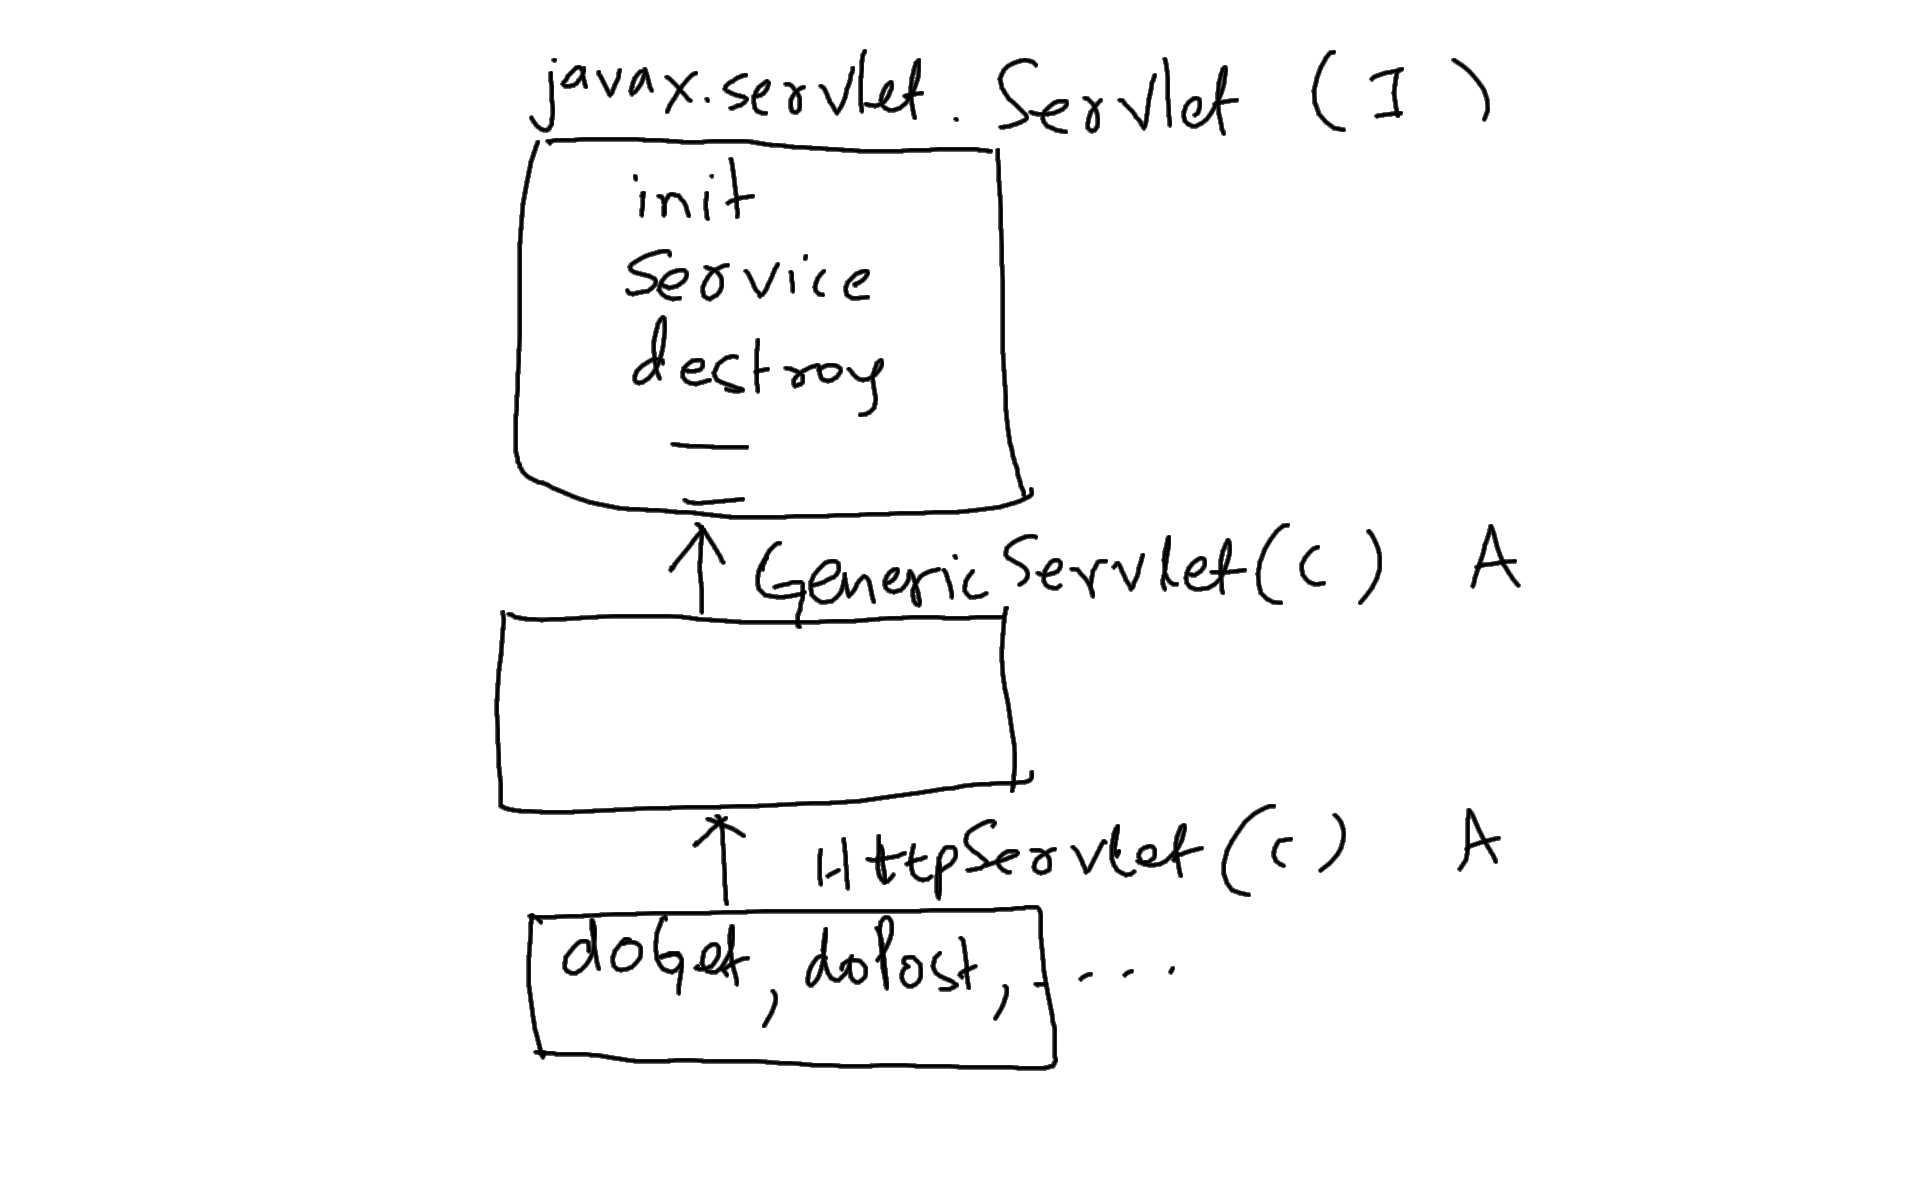 javax.servlet. Servlet (I)
init
Service
destroy
GenericServlet(C) A
HttpServlet(C) A
doGet, doPost, ....